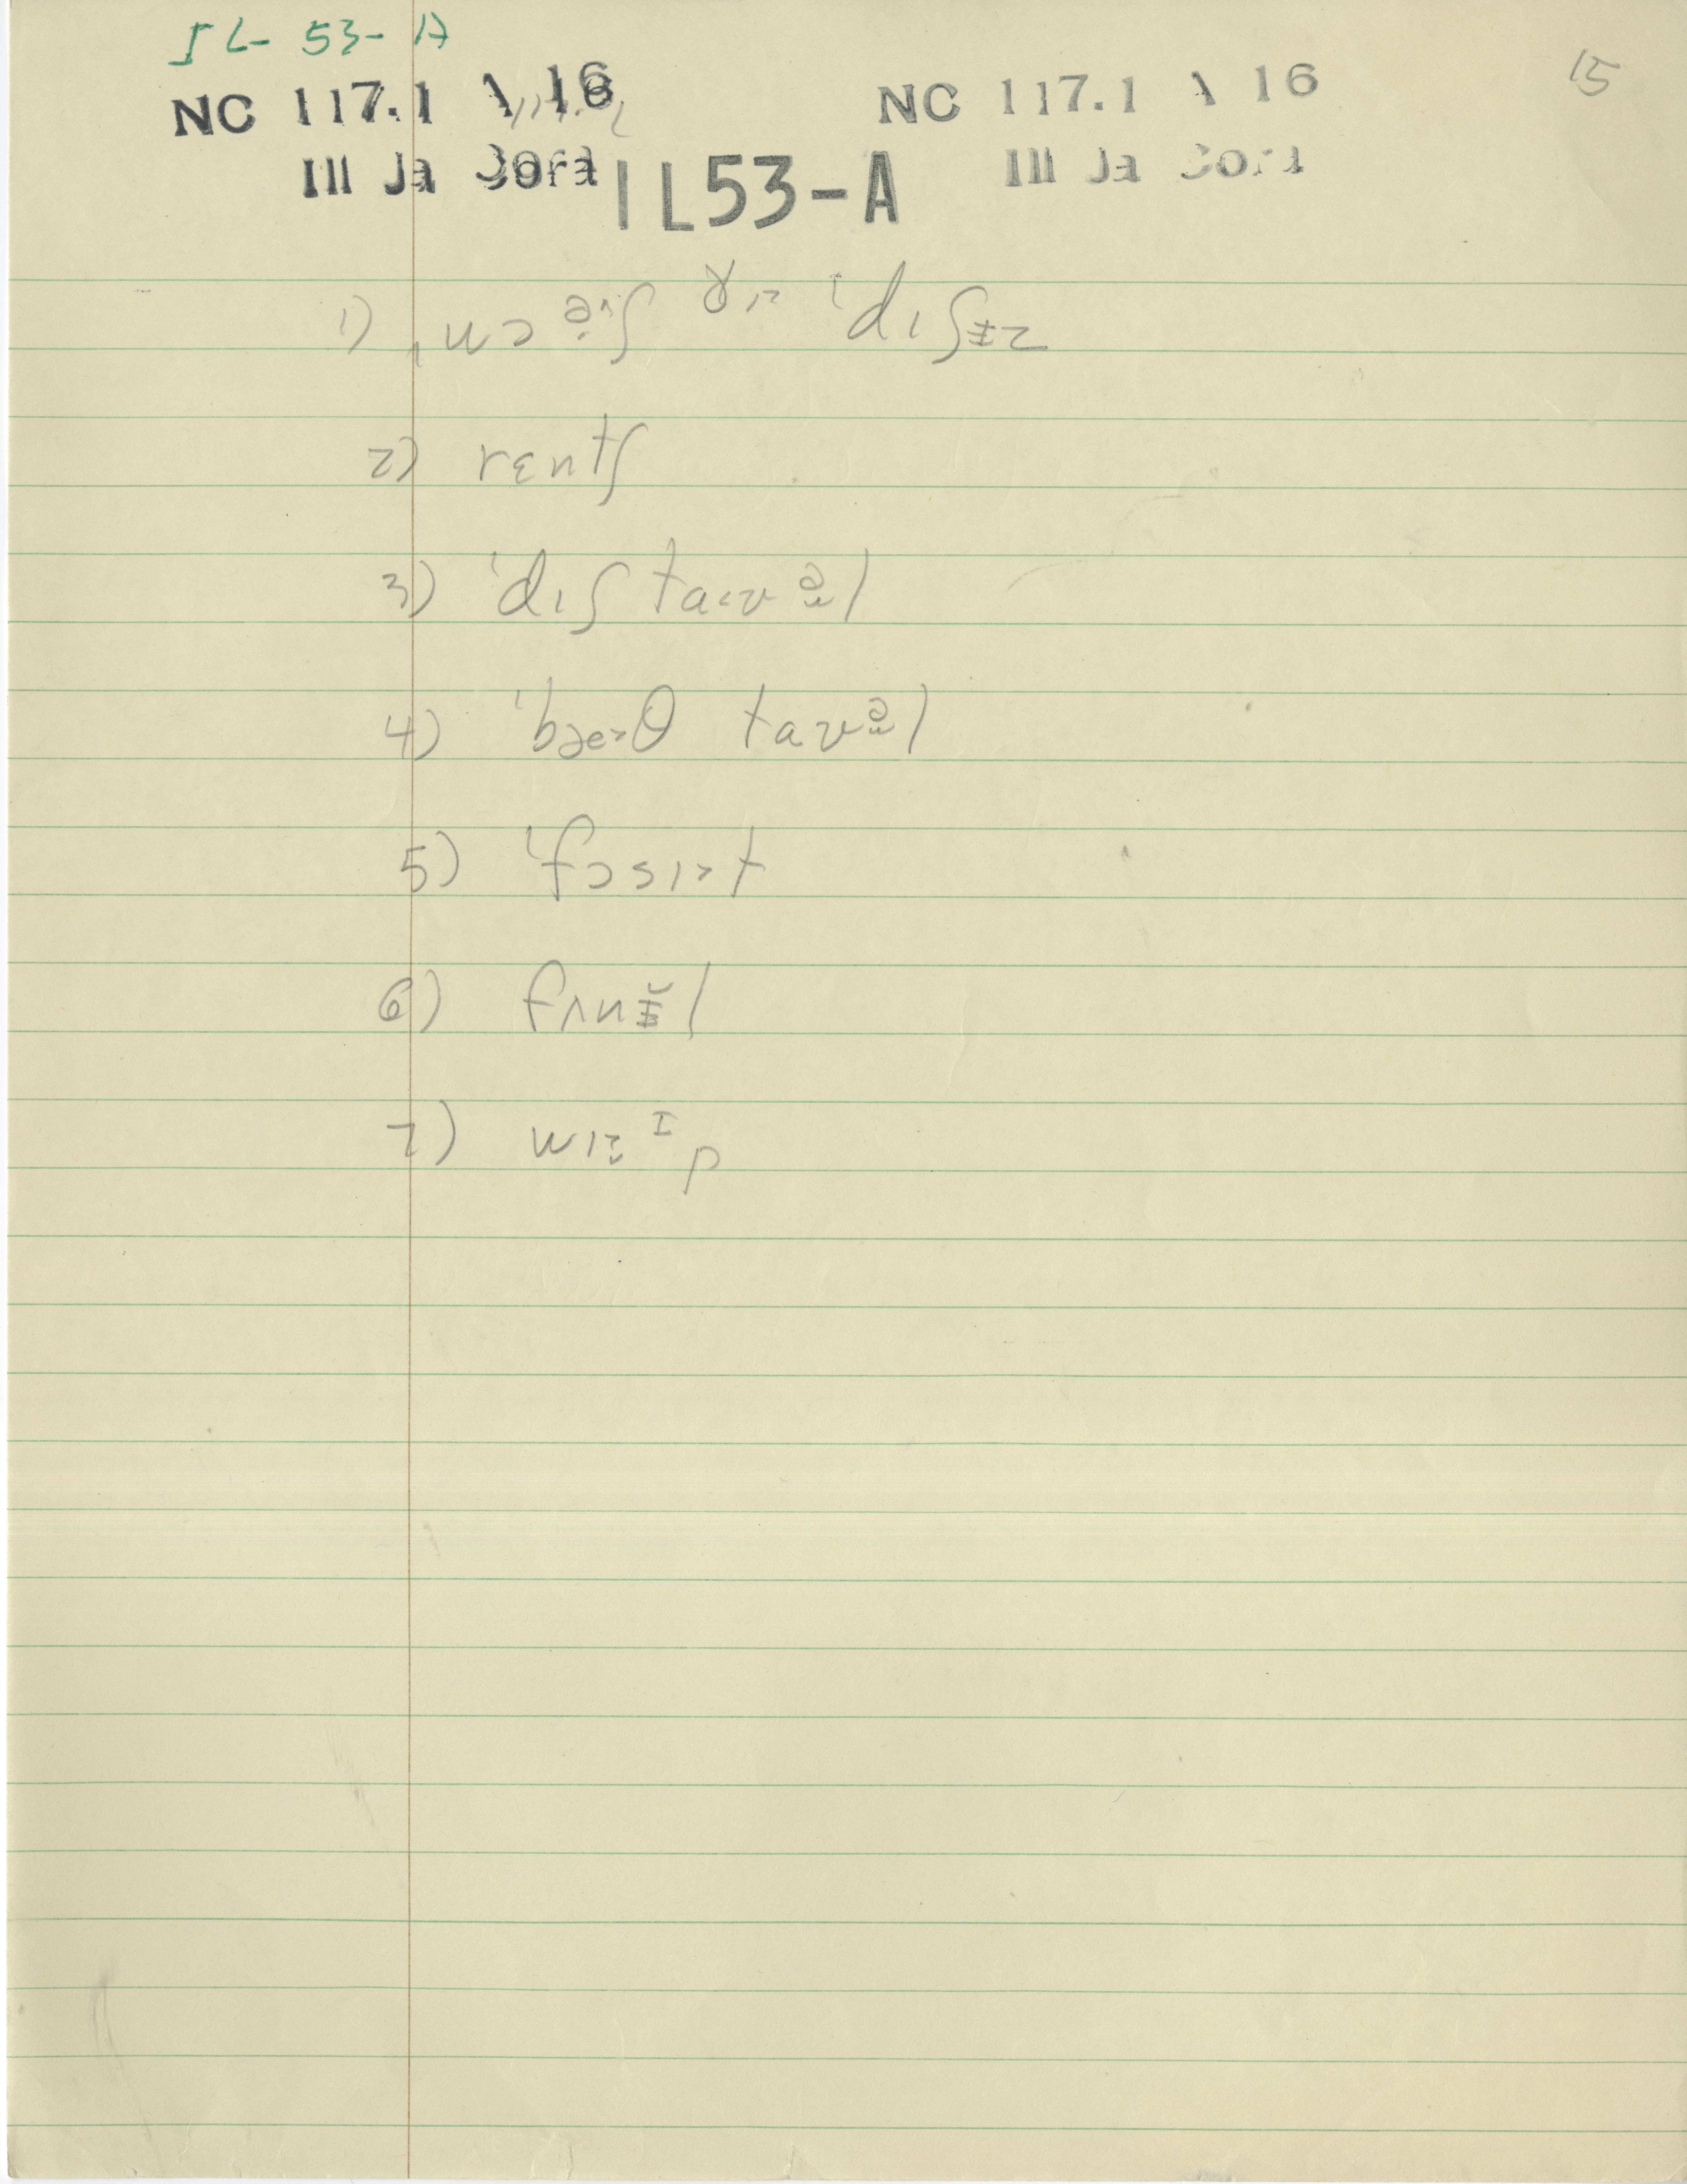 IL-53-A
NC 117.1 A 16 NC 117.1 A 16 15
Ill Ja Cora IL53-A Ill Ja Cora
1) ˌwɔ
ðɪ ˈdɪʃɨz
2) rɛntʃ
3) ˈdɪʃ taʊəl
4) ˈbæ˃θ taʊəl
5) ˈfɔsɪ˃t
6) fʌnɨ̆l
7) wɪ